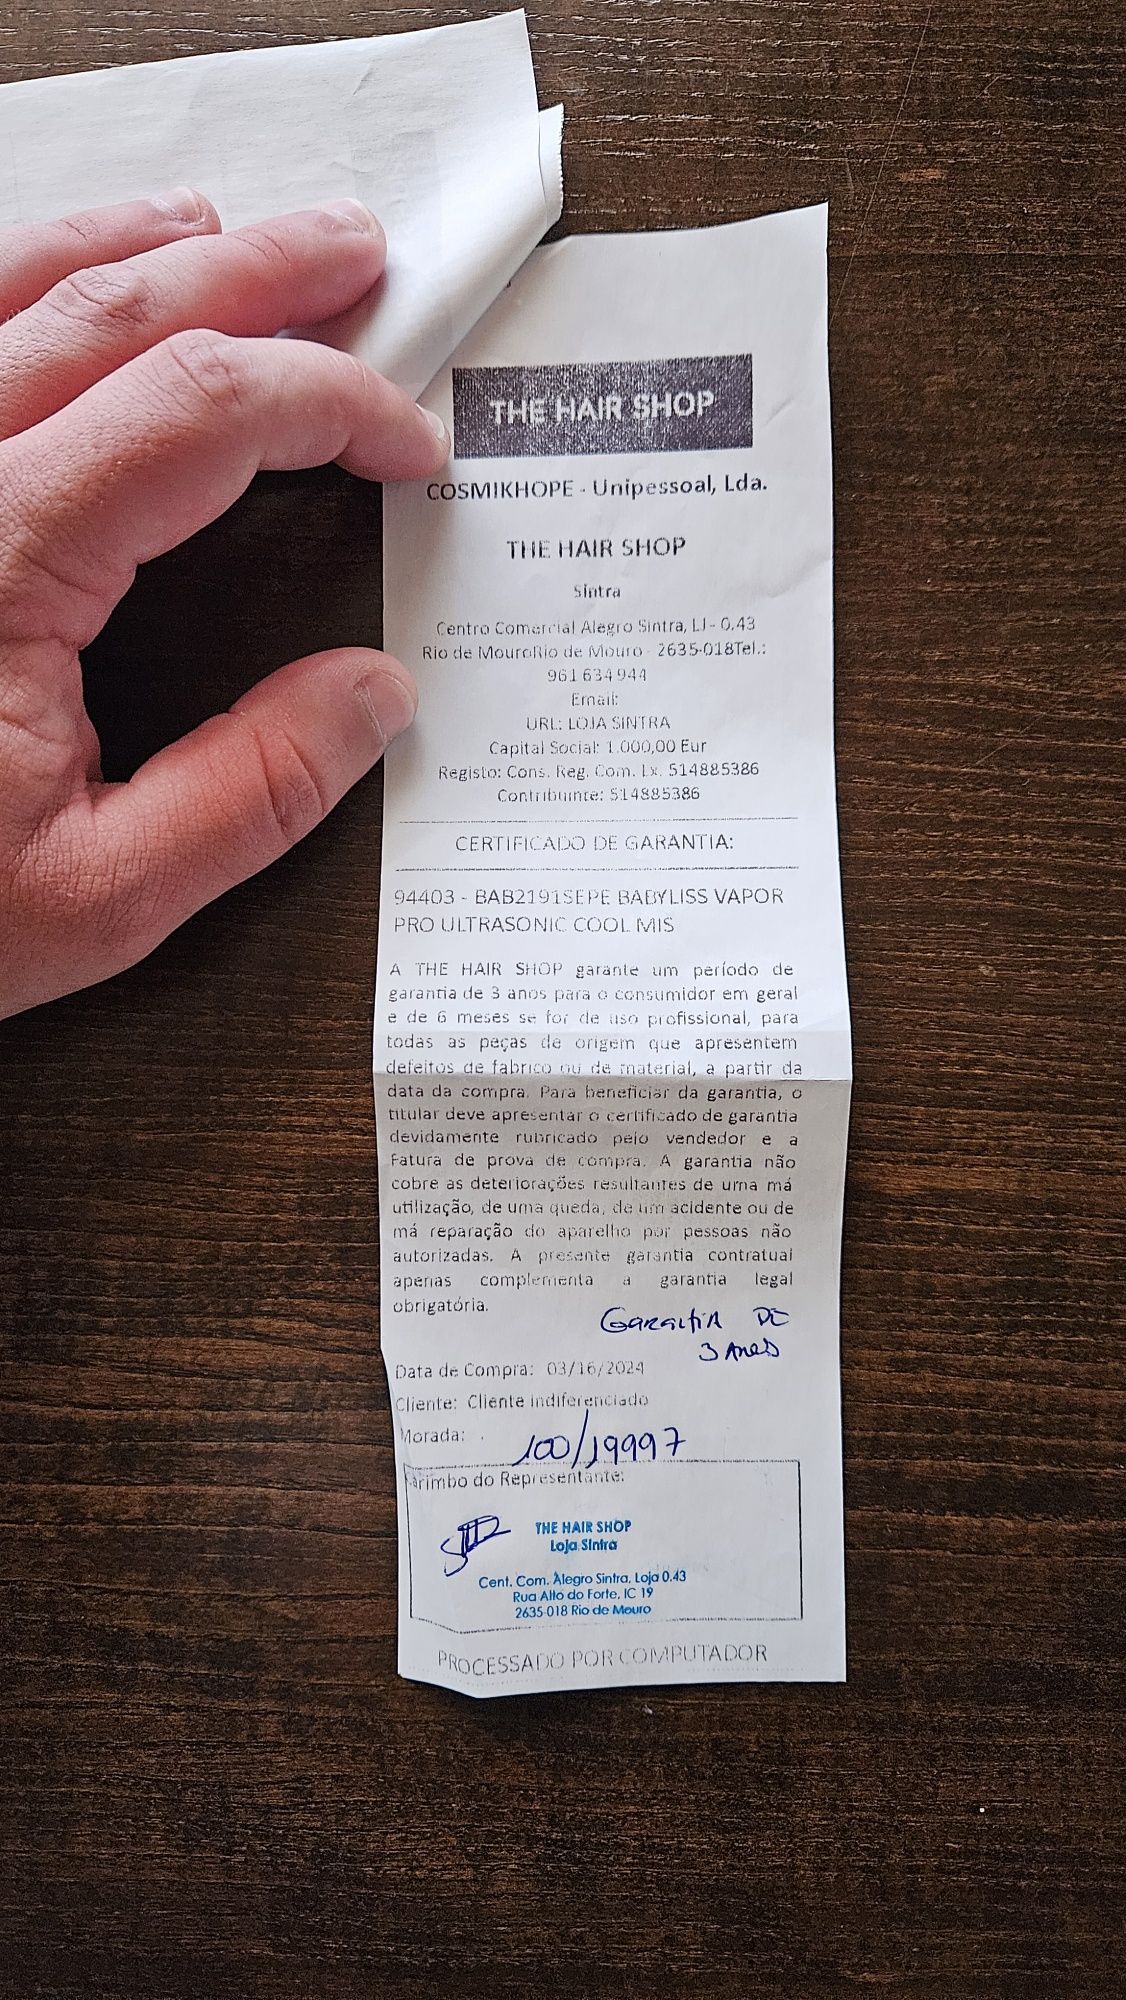 THE HAIR SHOP
COSMIKHOPE - Unipessoal, Lda.
THE HAIR SHOP
Sintra
Centro Comercial Alegro Sintra, LJ - 0.43
Rio de MouroRio de Mouro - 2635-018Tel.:
961 634 944
Email:
URL: LOJA SINTRA
Capital Social: 1.000,00 Eur
Registo: Cons. Reg. Com. Lx. 514885386
Contribuinte: 514885386
CERTIFICADO DE GARANTIA:
94403 - BAB2191SEPE BABYLISS VAPOR
PRO ULTRASONIC COOL MIS
A THE HAIR SHOP garante um período de
garantia de 3 anos para o consumidor em geral
e de 6 meses se for de uso profissional, para
todas as peças de origem que apresentem
defeitos de fabrico ou de material, a partir da
data da compra. Para beneficiar da garantia, o
titular deve apresentar o certificado de garantia
devidamente rubricado pelo vendedor e a
Fatura de prova de compra. A garantia não
cobre as deteriorações resultantes de uma má
utilização, de uma queda, de um acidente ou de
má reparação do aparelho por pessoas não
autorizadas. A presente garantia contratual
apenas complementa a garantia legal
obrigatória.
GARANTIA DE
3 Anos
Data de Compra: 03/16/2024
Cliente: Cliente indiferenciado
Morada: .
100/19997
arimbo do Representante:
THE HAIR SHOP
Loja Sintra
Cent. Com. Alegro Sintra, Loja 0.43
Rua Alto do Forte, IC 19
2635-018 Rio de Mouro
PROCESSADO POR COMPUTADOR